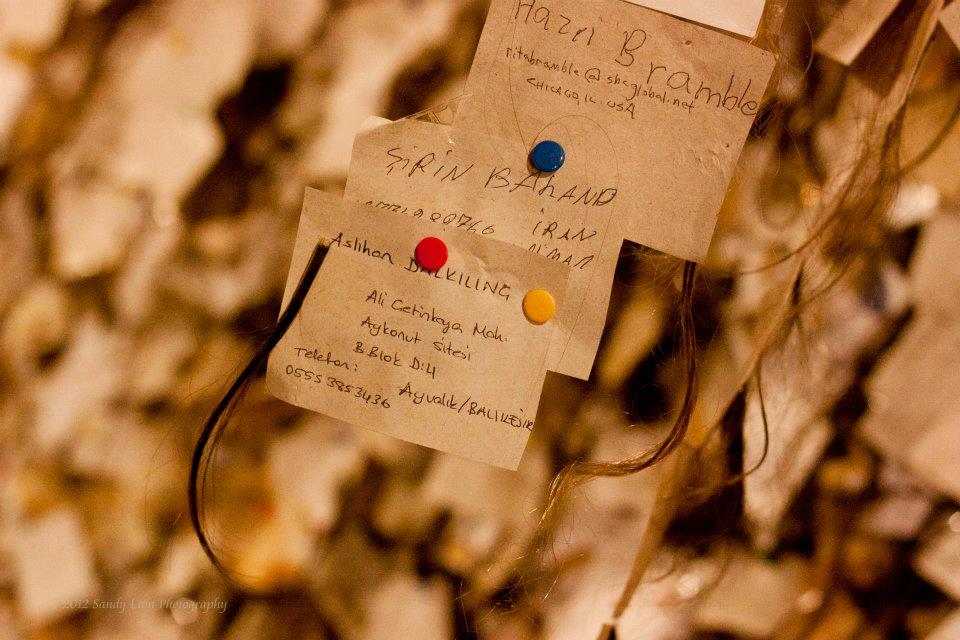 Hazel Bramble
nitabramble@sbcglobal.net
CHICAGO, IL USA
ŞİRİN BAHAND
İRAN
Aslıhan DALKILINÇ
Ali Çetinkaya Mah.
Aykonut Sitesi
B Blok D:4
Telefon:
0555 3853436
Ayvalık/BALIKESİR
© 2012 Sandy Lam Photography